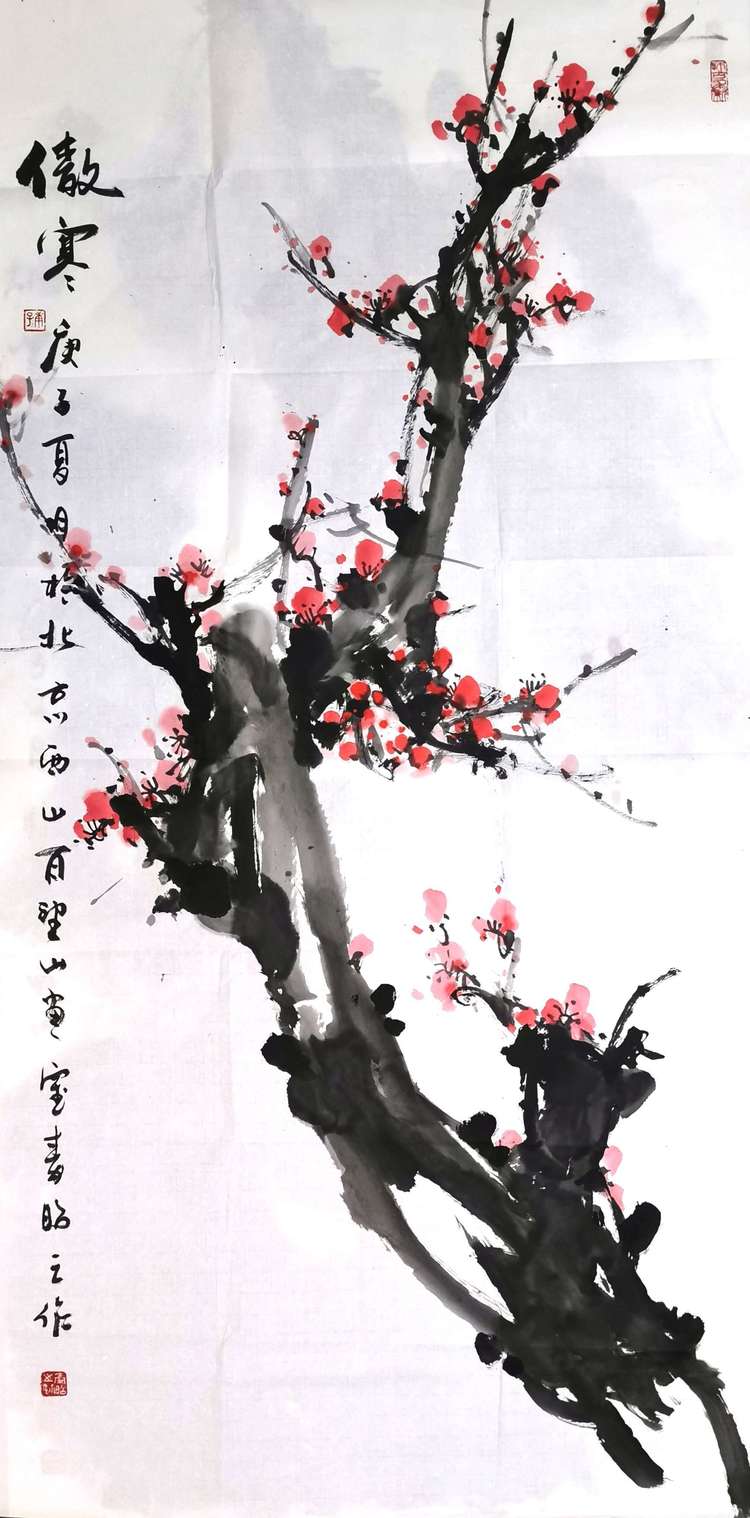 傲寒 庚子夏月於北京西山百望山畫室 昭之作